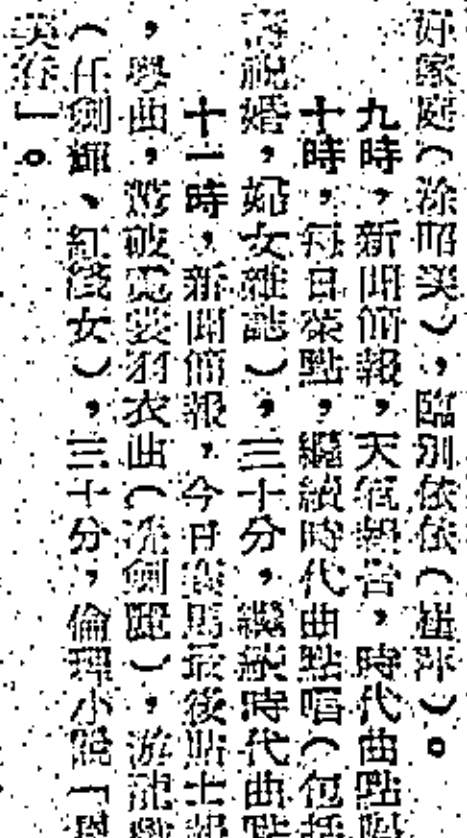 好家庭（涂昭美），臨別依依（崔萍）。
九時，新聞簡報，天氣報告，時代曲點
十時，每日菜點，繼續時代曲點唱（包括
祝婚，婦女雜誌），三十分，繼續時代曲點
十一時，新聞簡報，今日賽馬最後貼士
，粵曲，驚破霓裳羽衣曲（冼劍麗），游龍
（任劍輝、紅綫女），三十分，倫理小說「
笑春」。